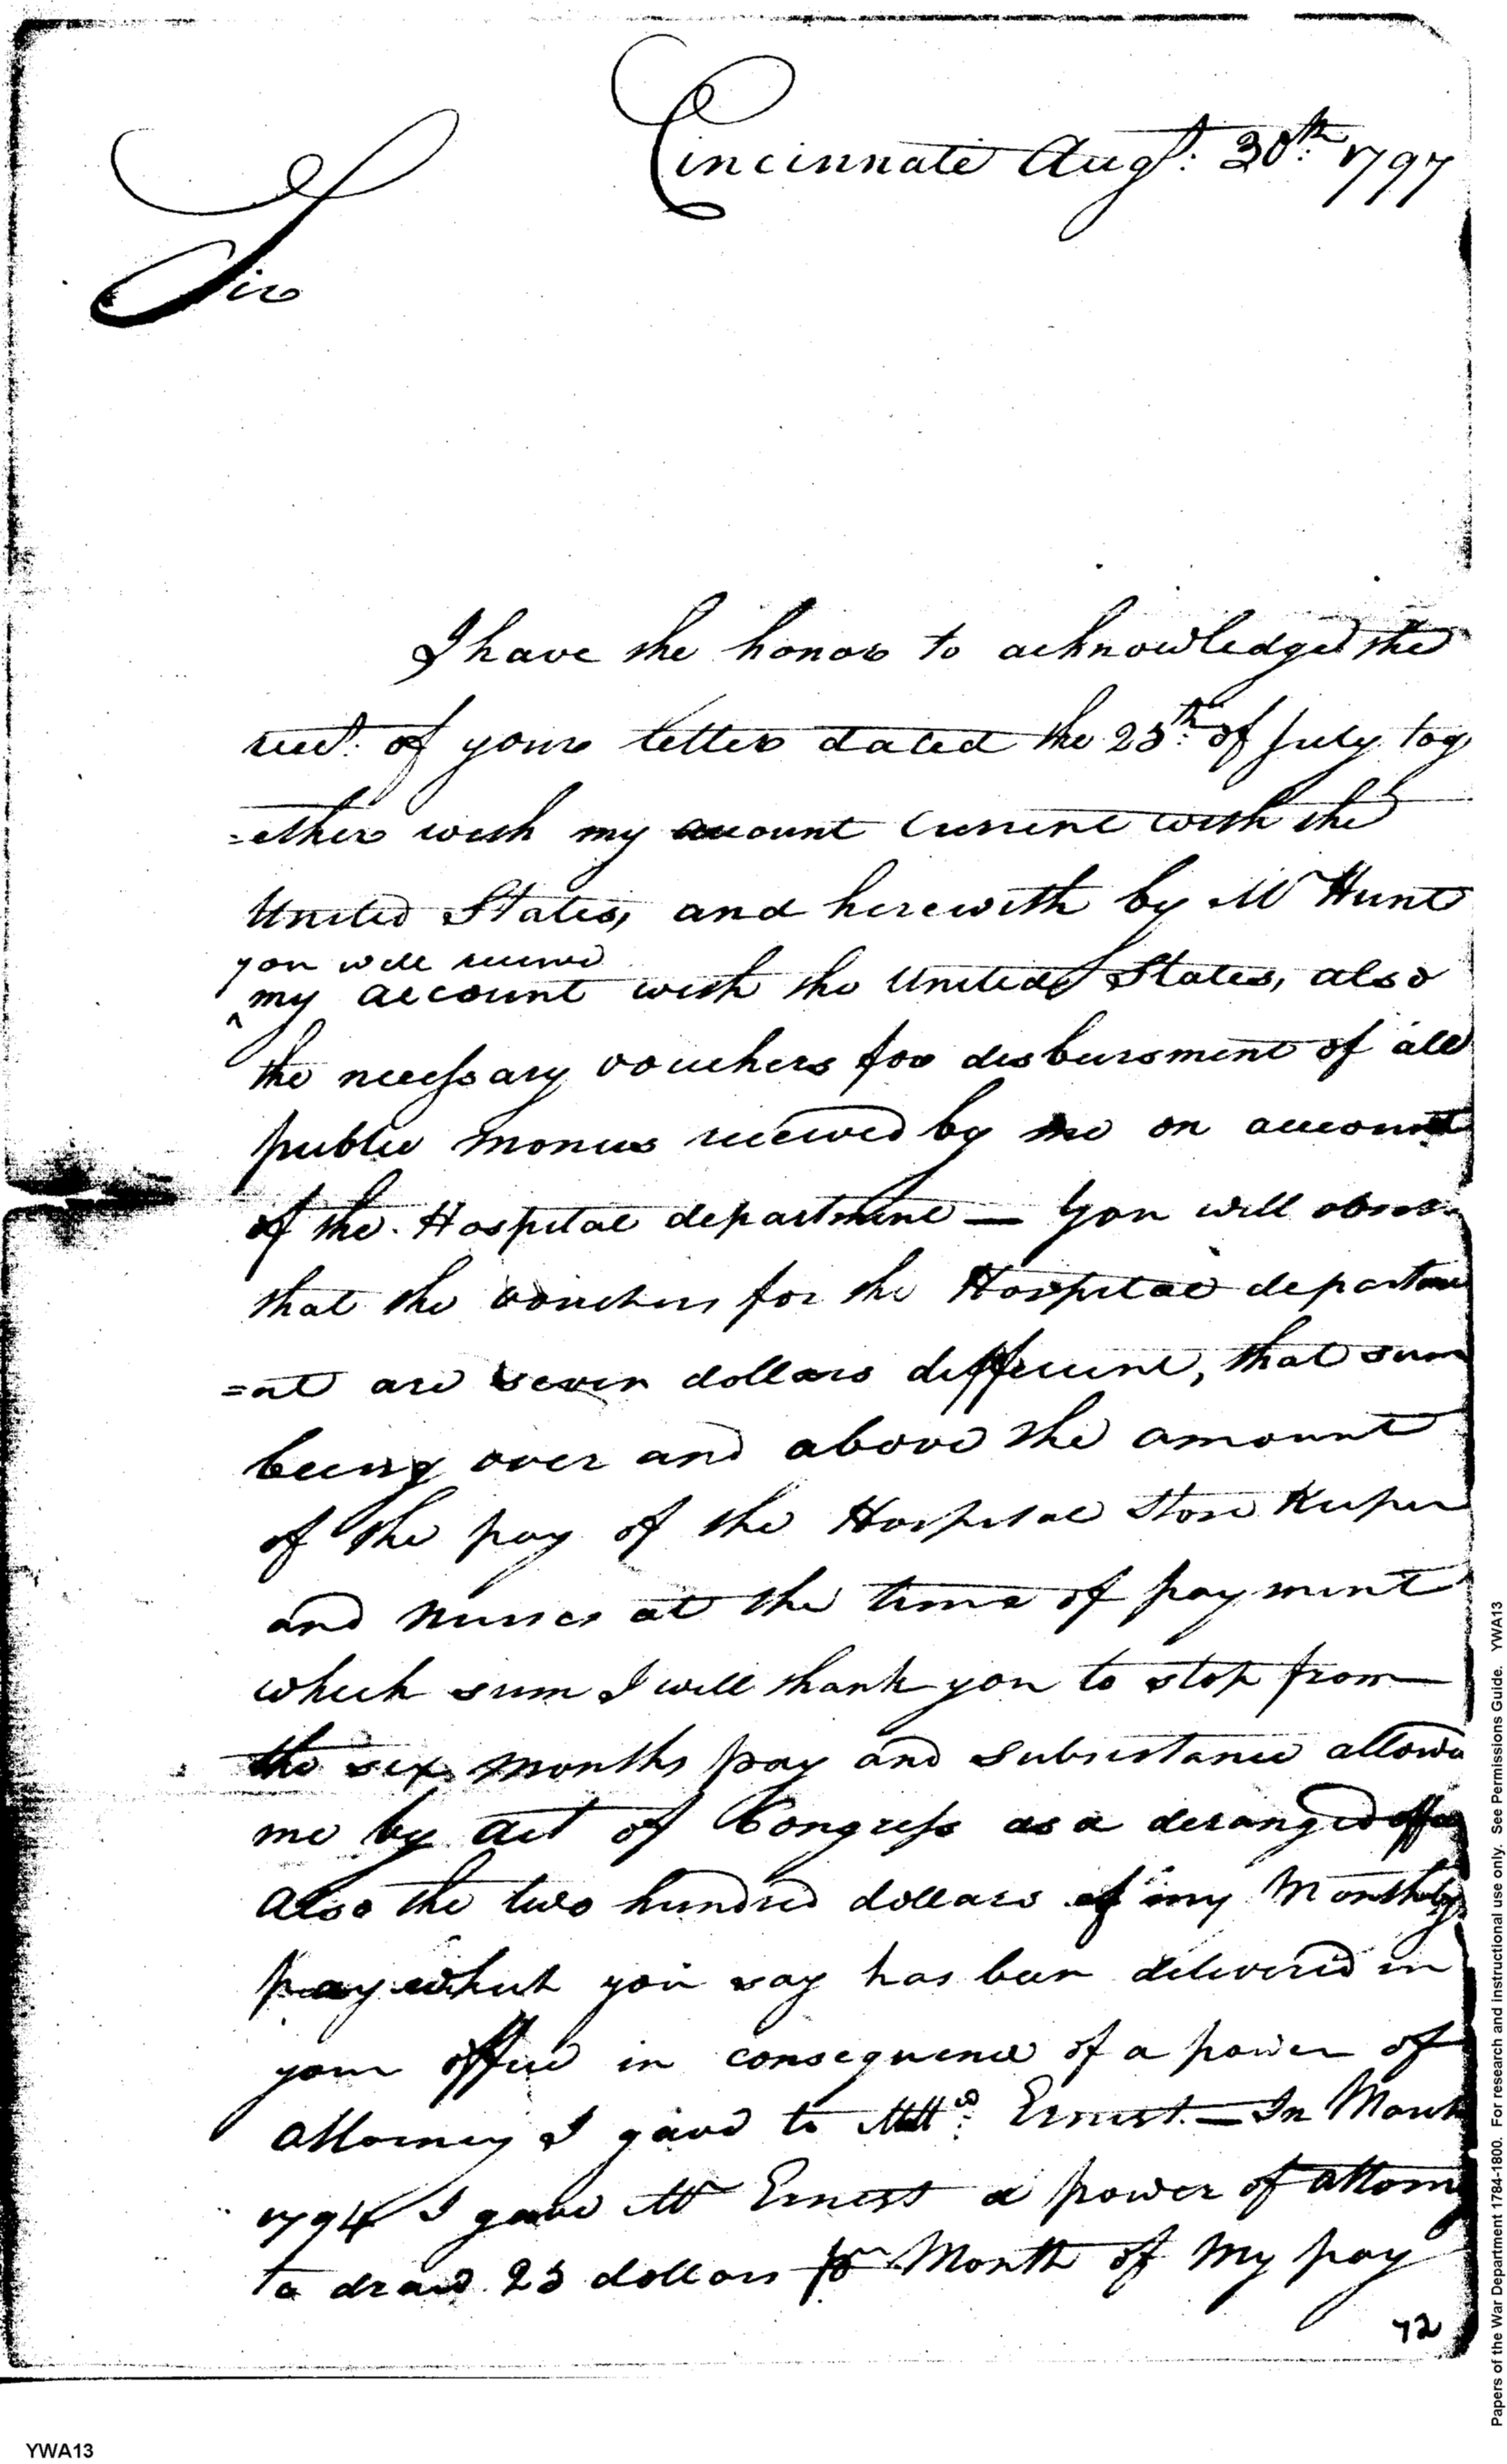 Cincinnate Augt. 30th 1797
Sir
I have the honor to acknowledge the
recd. of your letter dated the 25th of July tog
=ether with my account Current with the
United States, and herewith by Mr Hunt
you will receive
^my account with the United States, also
the necessary vouchers for disbursment of all
public monies received by me on account
of the Hospital department — You will obser
that the vouchers for the Hospital departme
=nt are seven dollars different, that sum
being over and above the amount
of the pay of the Hospital Store Keeper
and Nurses at the time of payment
which sum I will thank you to stop from
the six months pay and subsistance allowd
me by act of Congress as a deranged offic
also the two hundred dollars of my Monthly
pay which you say has been delivered in
your office in consequence of a power of
attorney I gave to Mattw. Ernest. — In March
1794 I gave Mr Ernest a power of attorn
to draw 25 dollars pr Month of my pay
72
YWA13
Papers of the War Department 1784-1800. For research and instructional use only. See Permissions Guide. YWA13